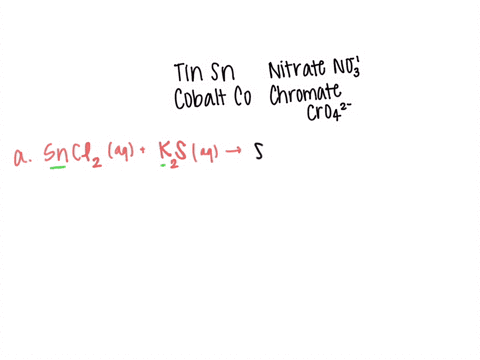 Tin Sn Nitrate NO₃¹⁻
Cobalt Co Chromate
CrO₄²⁻
a. SnCl₂ (aq) + K₂S (aq) → S